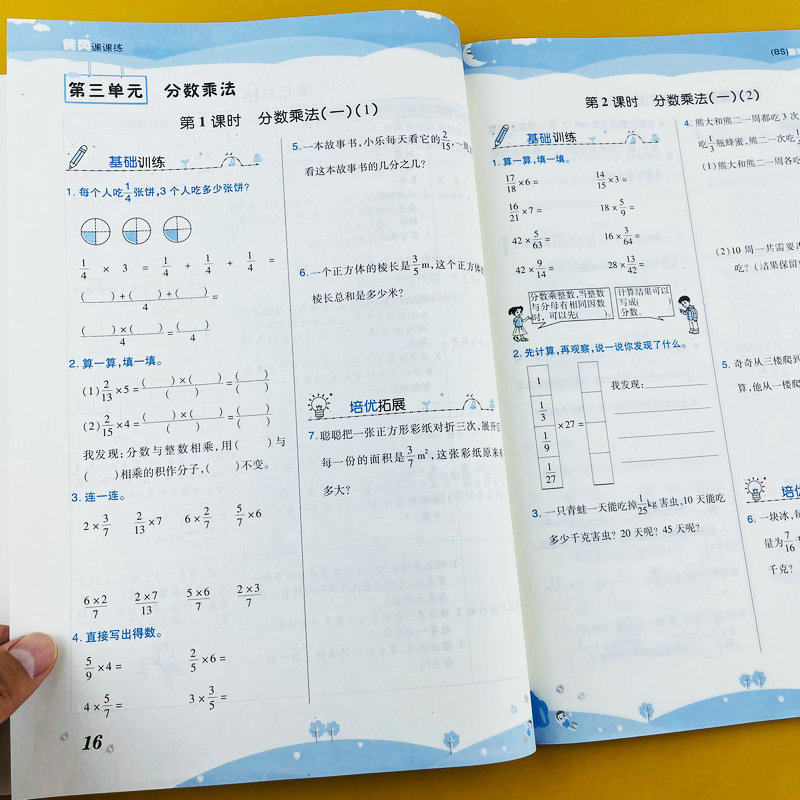 黄冈课课练
第三单元 分数乘法
第1课时 分数乘法(一)(1)
基础训练
1. 每个人吃1/4张饼,3个人吃多少张饼?
1/4 × 3 = 1/4 + 1/4 + 1/4 =
( )+( )+( )/4 =
( )×( )/4 = ( )/4
2. 算一算,填一填。
(1) 2/13 ×5= ( )×( )/( ) = ( )/( )
(2) 2/15 ×4= ( )×( )/( ) = ( )/( )
我发现:分数与整数相乘,用( )与
( )相乘的积作分子,( )不变。
3. 连一连。
2×3/7 2/13×7 6×2/7 5/7×6
6×2/7 2×7/13 5×6/7 2×3/7
4. 直接写出得数。
5/9×4= 2/5×6=
4×5/7= 3×3/5=
16
5. 一本故事书,小乐每天看它的2/15,一周
看这本故事书的几分之几?
6. 一个正方体的棱长是3/5 m,这个正方体
棱长总和是多少米?
培优拓展
7. 聪聪把一张正方形彩纸对折三次,展开
每一份的面积是3/7 m²,这张彩纸原来
多大?
(BS)
第2课时 分数乘法(一)(2)
基础训练
1. 算一算,填一填。
17/18×6= 14/15×3=
16/21×7= 18×5/9=
42×5/63= 16×3/64=
42×9/14= 28×13/42=
分数乘整数,当整数
与分母有相同因数
时,可以先( )。
计算结果可以
写成( )
分数。
2. 先计算,再观察,说一说你发现了什么。
1
1/3
1/9
1/27
×27=
我发现:
3. 一只青蛙一天能吃掉1/25 kg害虫,10天能吃
多少千克害虫? 20天呢? 45天呢?
4. 熊大和熊二一周都吃3次
吃1/3瓶蜂蜜,熊二一次吃
(1)熊大和熊二一周各吃
(2)10周一共需要
吃?(结果保留
5. 奇奇从三楼爬到
算,他从一楼爬
培优
6. 一块冰,每
量为7/16
千克?